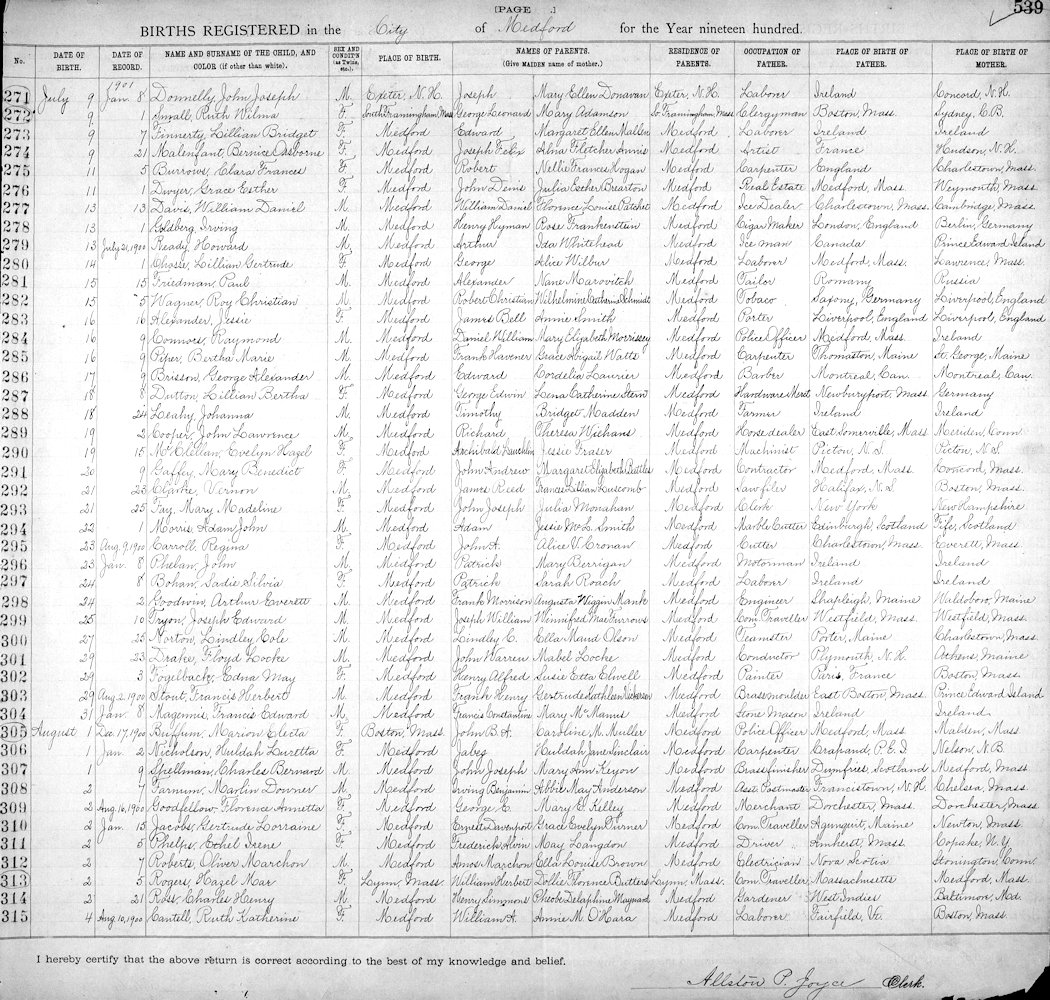 [PAGE .] 539
BIRTHS REGISTERED in the City of Medford for the Year nineteen hundred.
No. DATE OF BIRTH. DATE OF RECORD. NAME AND SURNAME OF THE CHILD, AND COLOR (if other than white). SEX AND CONDIT'N (as Twins, etc.). PLACE OF BIRTH. NAMES OF PARENTS. (Give MAIDEN name of mother.) RESIDENCE OF PARENTS. OCCUPATION OF FATHER. PLACE OF BIRTH OF FATHER. PLACE OF BIRTH OF MOTHER.
1901
271 July 9 Jan. 8 Donnelly, John Joseph M. Exeter, N.H. Joseph Mary Ellen Donavan Exeter, N.H. Laborer Ireland Concord, N.H.
272 9 1 Small, Ruth Wilma F. South Framingham, Mass George Leonard Mary Adamson So. Framingham, Mass Clergyman Boston, Mass. Sydney, C.B.
273 9 7 Finnerty, Lillian Bridget F. Medford Edward Margaret Ellen Mallen Medford Laborer Ireland Ireland
274 9 21 Malenfant, Bernice Osborne F. Medford Joseph Felix Alna Fletcher Annis Medford Artist France Hudson, N.H.
275 11 5 Burrows, Clara Frances F. Medford Robert Nellie Frances Hogan Medford Carpenter England Charlestown, Mass.
276 11 1 Dwyer, Grace Esther F. Medford John Denis Julia Esther Brearton Medford Real Estate Medford, Mass. Weymouth, Mass.
277 13 13 Davis, William Daniel M. Medford William Daniel Florence Louise Patchet Medford Ice Dealer Charlestown, Mass. Cambridge, Mass.
278 13 1 Goldberg, Irving M. Medford Henry Hyman Rose Frankenstein Medford Cigar Maker London, England Berlin, Germany
279 13 July 21, 1900 Ready, Howard M. Medford Arthur Ida Whitehead Medford Ice man Canada Prince Edward Island
280 14 1 Chasse, Lillian Gertrude F. Medford George Alice Wilbur Medford Laborer Medford, Mass. Lawrence, Mass.
281 15 15 Friedman, Paul M. Medford Alexander Nane Marovitch Medford Tailor Romany Russia
282 15 5 Wagner, Roy Christian M. Medford Robert Christian Wilhelmine Catherine Schmidt Medford Tobaco Saxony, Germany Liverpool, England
283 16 16 Alexander, Jessie F. Medford James Bell Annie Smith Medford Porter Liverpool, England Liverpool, England
284 16 9 Connors, Raymond M. Medford Daniel William Mary Elizabeth Morrissey Medford Police Officer Medford, Mass. Ireland
285 16 9 Piper, Bertha Marie F. Medford Frank Havener Grace Abigail Watts Medford Carpenter Thomaston, Maine St. George, Maine
286 17 9 Brisson, George Alexander M. Medford Edward Cordelia Laurier Medford Barber Montreal, Can. Montreal, Can.
287 18 8 Dutton, Lillian Bertha F. Medford George Edwin Lena Catherine Stern Medford Hardware Merct Newburyport, Mass Germany
288 18 24 Leahy, Johanna M. Medford Timothy Bridget Madden Medford Farmer Ireland Ireland
289 19 2 Cooper, John Lawrence M. Medford Richard Theresa Wichans Medford Horse dealer East Somerville, Mass Meriden, Conn
290 19 15 McClellan, Evelyn Hazel F. Medford Archibald Lauchlin Jessie Fraser Medford Machinist Picton, N.S. Picton, N.S.
291 20 9 Gaffey, Mary Benedict F. Medford John Andrew Margaret Elizabeth Rattles Medford Contractor Medford, Mass. Concord, Mass.
292 21 23 Clarke, Vernon M. Medford James Reed Frances Lillian Luscomb Medford Saw filer Halifax, N.S. Boston, Mass.
293 21 25 Fay, Mary Madeline F. Medford John Joseph Julia Monahan Medford Clerk New York New Hampshire
294 22 1 Morris, Adam John M. Medford Adam Jessie McL. Smith Medford Marble Cutter Edinburgh, Scotland Fife, Scotland
295 23 Aug. 9, 1900 Carroll, Regina F. Medford John A. Alice V. Cronan Medford Cutter Charlestown, Mass. Everett, Mass.
296 23 Jan. 8 Phelan, John M. Medford Patrick Mary Berrigan Medford Motorman Ireland Ireland
297 24 8 Bohan, Sadie Silvia F. Medford Patrick Sarah Roach Medford Laborer Ireland Ireland
298 24 2 Goodwin, Arthur Everett M. Medford Frank Morrison Augusta Wiggin Mank Medford Engineer Shapleigh, Maine Waldoboro, Maine
299 25 10 Tryon, Joseph Edward M. Medford Joseph William Winnifred Mae Furrows Medford Com. Traveller Westfield, Mass. Westfield, Mass.
300 27 25 Norton, Lindley Cole M. Medford Lindley C. Ella Maud Olson Medford Teamster Porter, Maine Charlestown, Mass.
301 29 23 Drake, Floyd Locke M. Medford John Warren Mabel Locke Medford Conductor Plymouth, N.H. Athens, Maine
302 29 3 Fogelback, Edna May F. Medford Henry Alfred Susie Etta Elwell Medford Painter Paris, France Boston, Mass.
303 29 Aug. 2, 1900 Stout, Francis Herbert M. Medford Frank Henry Gertrude Kathleen Medford Brassmoulder East Boston, Mass. Prince Edward Island
304 31 Jan. 8 Magennis, Francis Edward M. Medford Francis Constantine Mary McManus Medford Stone Mason Ireland Ireland
305 August 1 Dec. 17, 1900 Buffum, Marion Electa F. Boston, Mass. John B. A. Caroline M. Muller Medford Police Officer Medford, Mass. Malden, Mass
306 1 Jan. 2 Nicholson, Huldah Luretta F. Medford Jabez Huldah Jane Sinclair Medford Carpenter Crapaud, P.E.I Nelson, N.B.
307 1 9 Spellman, Charles Bernard M. Medford John Joseph Mary Ann Keyon Medford Brassfinisher Dumfries, Scotland Medford, Mass
308 2 7 Farnum, Marlin Downer M. Medford Irving Benjamin Abbie May Anderson Medford Asst. Postmaster Francistown, N.H. Chelsea, Mass.
309 2 Aug. 16, 1900 Goodfellow, Florence Annetta F. Medford George E. Mary E. Kelley Medford Merchant Dorchester, Mass. Dorchester, Mass
310 2 Jan. 15 Jacobs, Gertrude Lorraine F. Medford Ernest Davenport Grace Evelyn Turner Medford Com. Traveller Agunquit, Maine Newton, Mass.
311 2 5 Phelps, Ethel Irene F. Medford Frederick Alvin May Langdon Medford Driver Amherst, Mass. Copake, N.Y.
312 2 7 Roberts, Oliver Marchon M. Medford Amos Marchon Ella Louise Brown Medford Electrician Nova Scotia Stonington, Conn.
313 2 5 Rogers, Hazel Mar F. Lynn, Mass. William Herbert Dollie Florence Butters Lynn, Mass. Com. Traveller Massachusetts Medford, Mass.
314 2 21 Ross, Charles Henry M. Medford Henry Simmons Pheobe Delaphine Maynard Medford Gardener West Indies Baltimore, Md.
315 4 Aug. 10, 1900 Cantell, Ruth Katherine F. Medford William A. Annie M. O'Hara Medford Laborer Fairfield, Vt. Boston, Mass.
I hereby certify that the above return is correct according to the best of my knowledge and belief.
Allston P. Joyce Clerk.